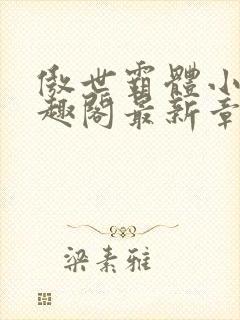 傲世霸體小
趣閣最新章
梁素雅